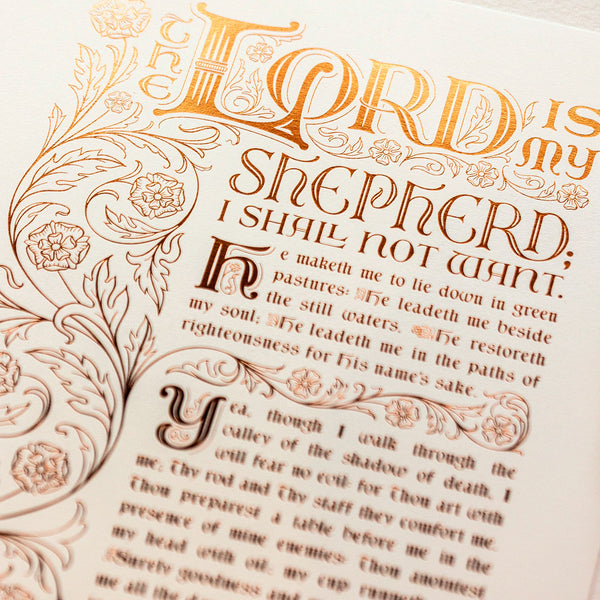 THE LORD IS MY
SHEPHERD;
I SHALL NOT WANT.
He maketh me to lie down in green
pastures: He leadeth me beside
the still waters. He restoreth
my soul; He leadeth me in the paths of
righteousness for His name's sake.
Yea, though I walk through the
valley of the shadow of death, I
will fear no evil: for Thou art with
me; Thy rod and Thy staff they comfort me.
Thou preparest a table before me in the
presence of mine enemies: Thou anointest
my head with oil; my cup runneth
Surely goodness and
me all the